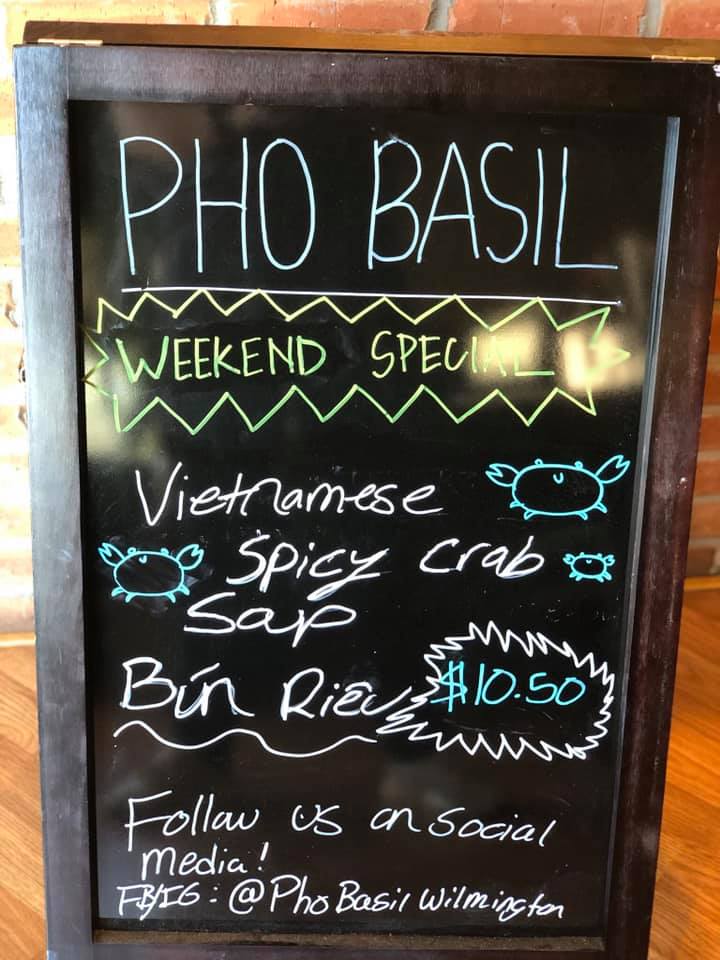 PHO BASIL
WEEKEND SPECIAL
Vietnamese
Spicy Crab
Soup
Bún Riêu $10.50
Follow us on Social
media!
FB/IG: @PhoBasilWilmington